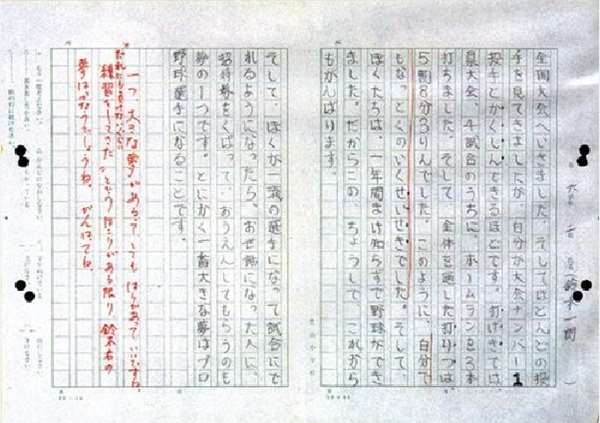 鈴木一朗
全国大会へいきました。そしてほとんどの投
手を見てきましたが、自分が大会ナンバー1
投手とかくしんできるほどです。打げきでは、
県大会、4試合のうちに、ホームランを3本
打ちました。そして、全体を通した打りつは、
5割8分3りんでした。このように、自分で
もなっとくのいくせいせきでした。そして、
ぼくたちは、一年間まけ知らずで野球ができ
ました。だから、この、ちょうしで、これから
もがんばります。
そして、ぼくが一流の選手になって試合にで
れるようになったら、お世話になった人に、
招待券をくばって、おうえんしてもらうのも
夢の1つです。とにかく一番大きな夢はプロ
野球選手になることです。
一つ大きな夢がある、とても はりがあっていいですね。
だれにもまけないくらいに
練習をしてきたというほこりがある限り、鈴木君の
夢はかなうでしょうね。がんばってね。